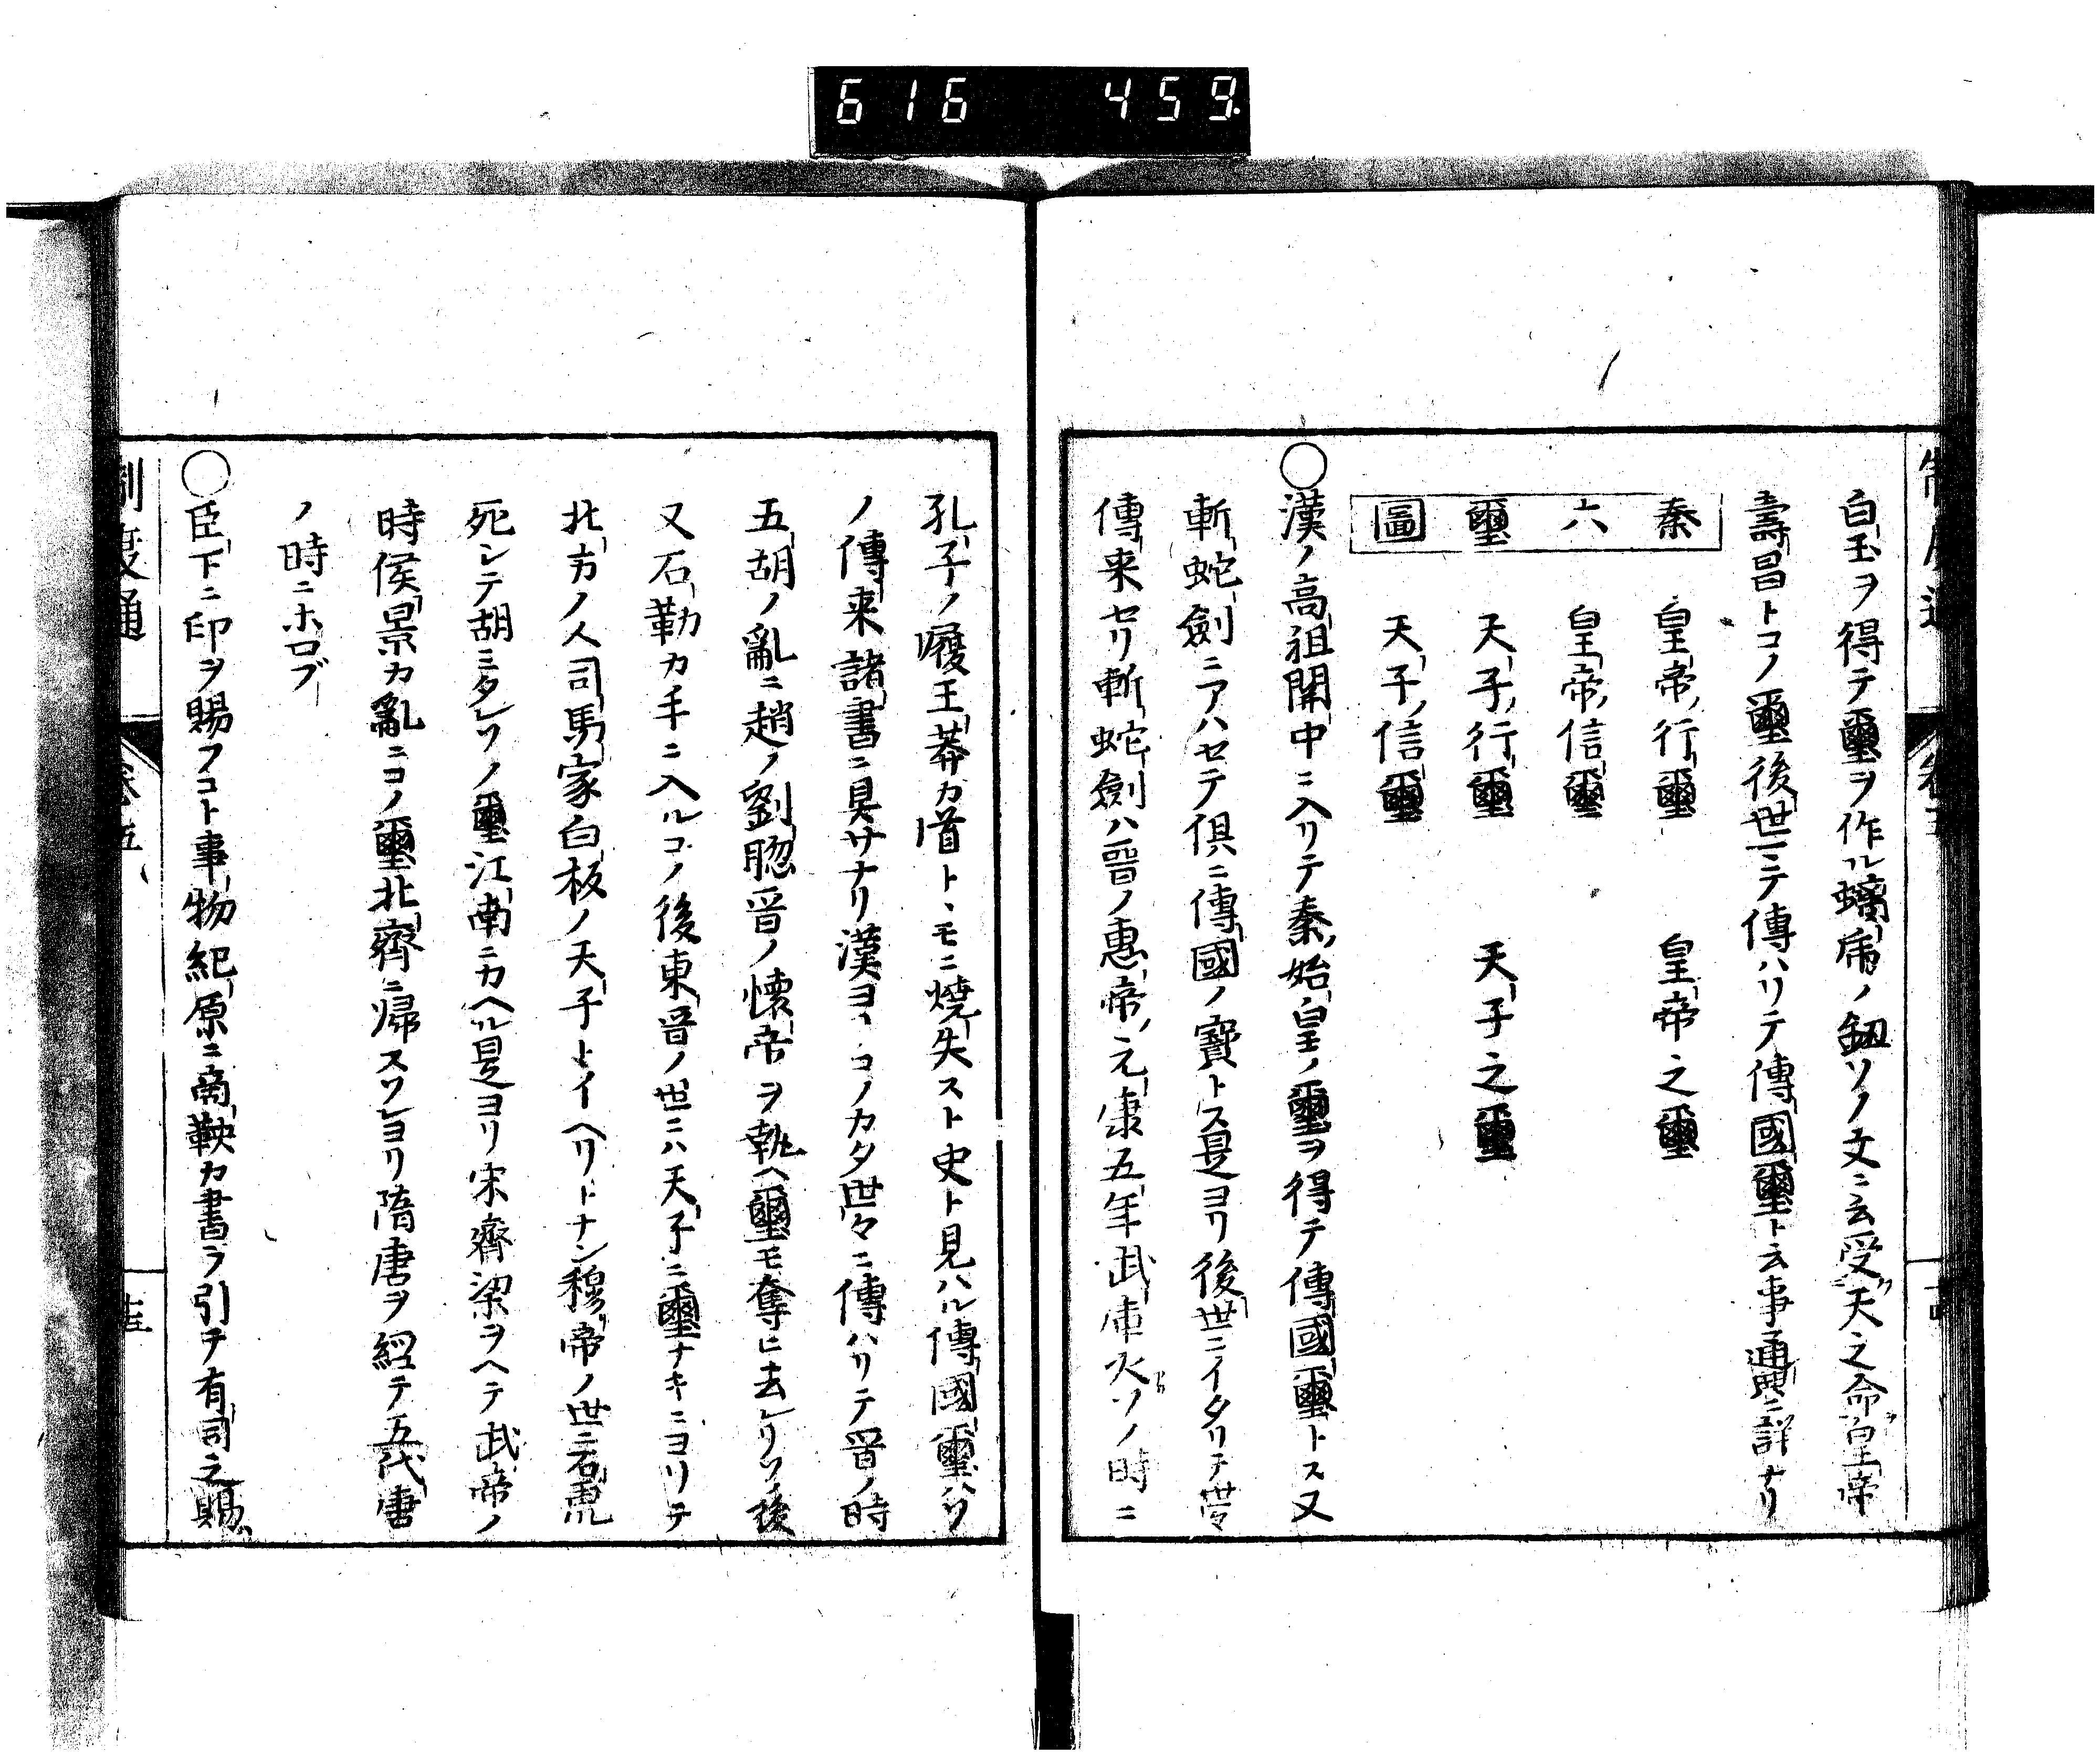 616 459
白玉ヲ得テ璽ヲ作ル螭虎ノ鈕ソノ文ニ云受天之命皇帝
壽昌トコノ璽後世ニテ傳ハリテ傳國璽ト云事通典ニ詳ナリ
秦六璽圖
皇帝行璽 皇帝之璽
皇帝信璽
天子行璽 天子之璽
天子信璽
○漢ノ高祖関中ニ入リテ秦始皇ノ璽ヲ得テ傳國璽トス又
斬蛇劍ニアハセテ倶ニ傳國ノ寳トス是ヨリ後世ニイタリテ世々
傳来セリ斬蛇劍ハ晉ノ惠帝ノ元康五年武庫火ソノ時ニ
孔子ノ履王莽カ首トヽモニ焼失スト史ト見ハル傳國璽ハソ
ノ傳来諸書ニ具サナリ漢ヨリコノカタ世々ニ傳ハリテ晉ノ時
五胡ノ亂ニ趙ノ劉聡晉ノ懐帝ヲ執ヘ璽モ奪ヒ去レリソノ後
又石勒カ手ニ入ルコノ後東晉ノ世ニハ天子ニ璽ナキニヨリテ
北方ノ人司馬家白板ノ天子トイヘリトナン穆帝ノ世ニ石虎
死シテ胡ミタレソノ璽江南ニカヘル是ヨリ宋齊梁ヲヘテ武帝ノ
時侯景カ亂ニコノ璽北齊ニ帰スソレヨリ隋唐ヲ經テ五代唐
ノ時ニホロブ
○臣下ニ印ヲ賜フコト事物紀原ニ商鞅カ書ヲ引テ有司之賜
制度通 卷五